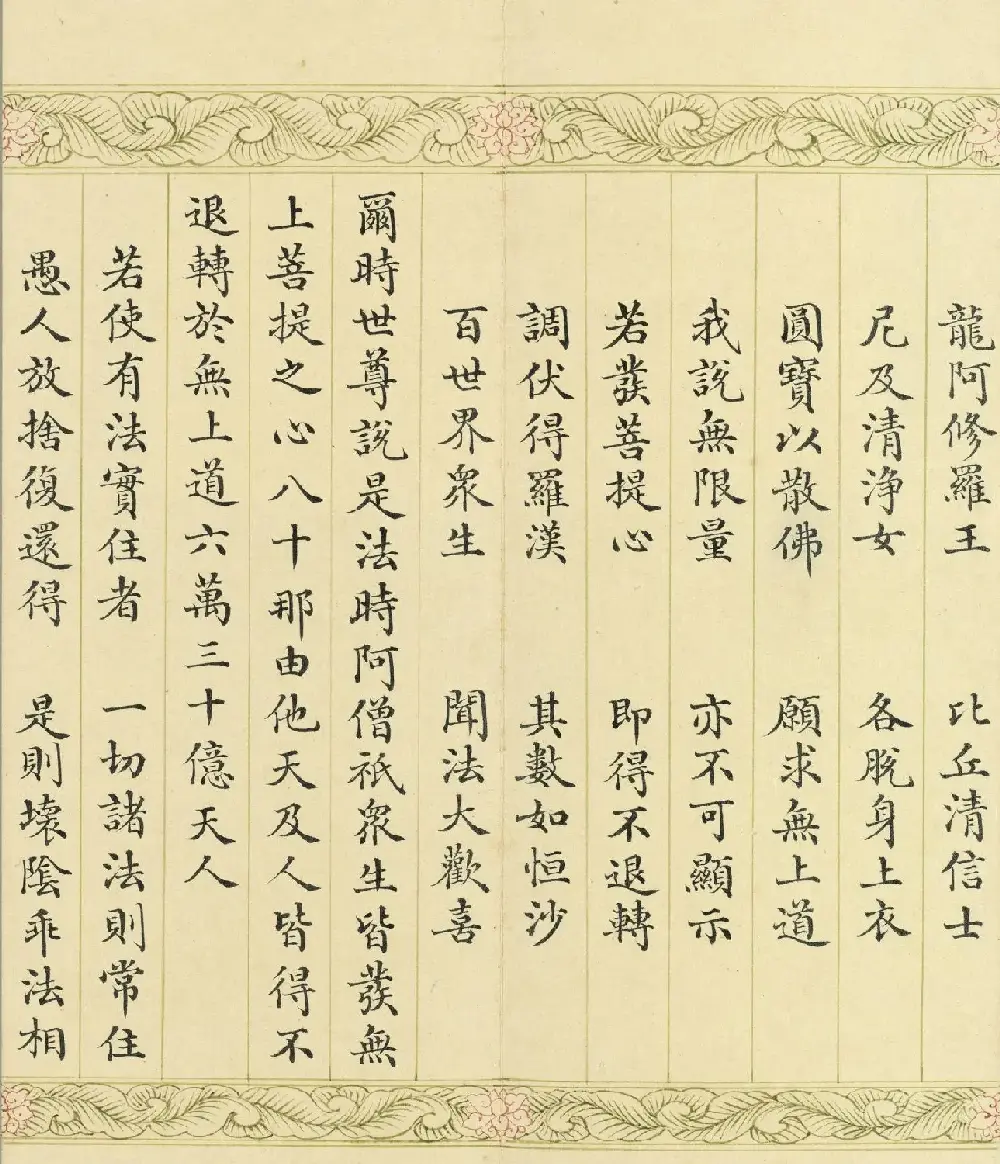 龍阿修羅王　比丘清信士
尼及清淨女　各脫身上衣
圓寶以散佛　願求無上道
我說無限量　亦不可顯示
若發菩提心　即得不退轉
調伏得羅漢　其數如恒沙
百世界眾生　聞法大歡喜
爾時世尊說是法時阿僧祇眾生皆發無
上菩提之心八十那由他天及人皆得不
退轉於無上道六萬三十億天人
若使有法實住者　一切諸法則常住
愚人放捨復還得　是則壞陰乖法相